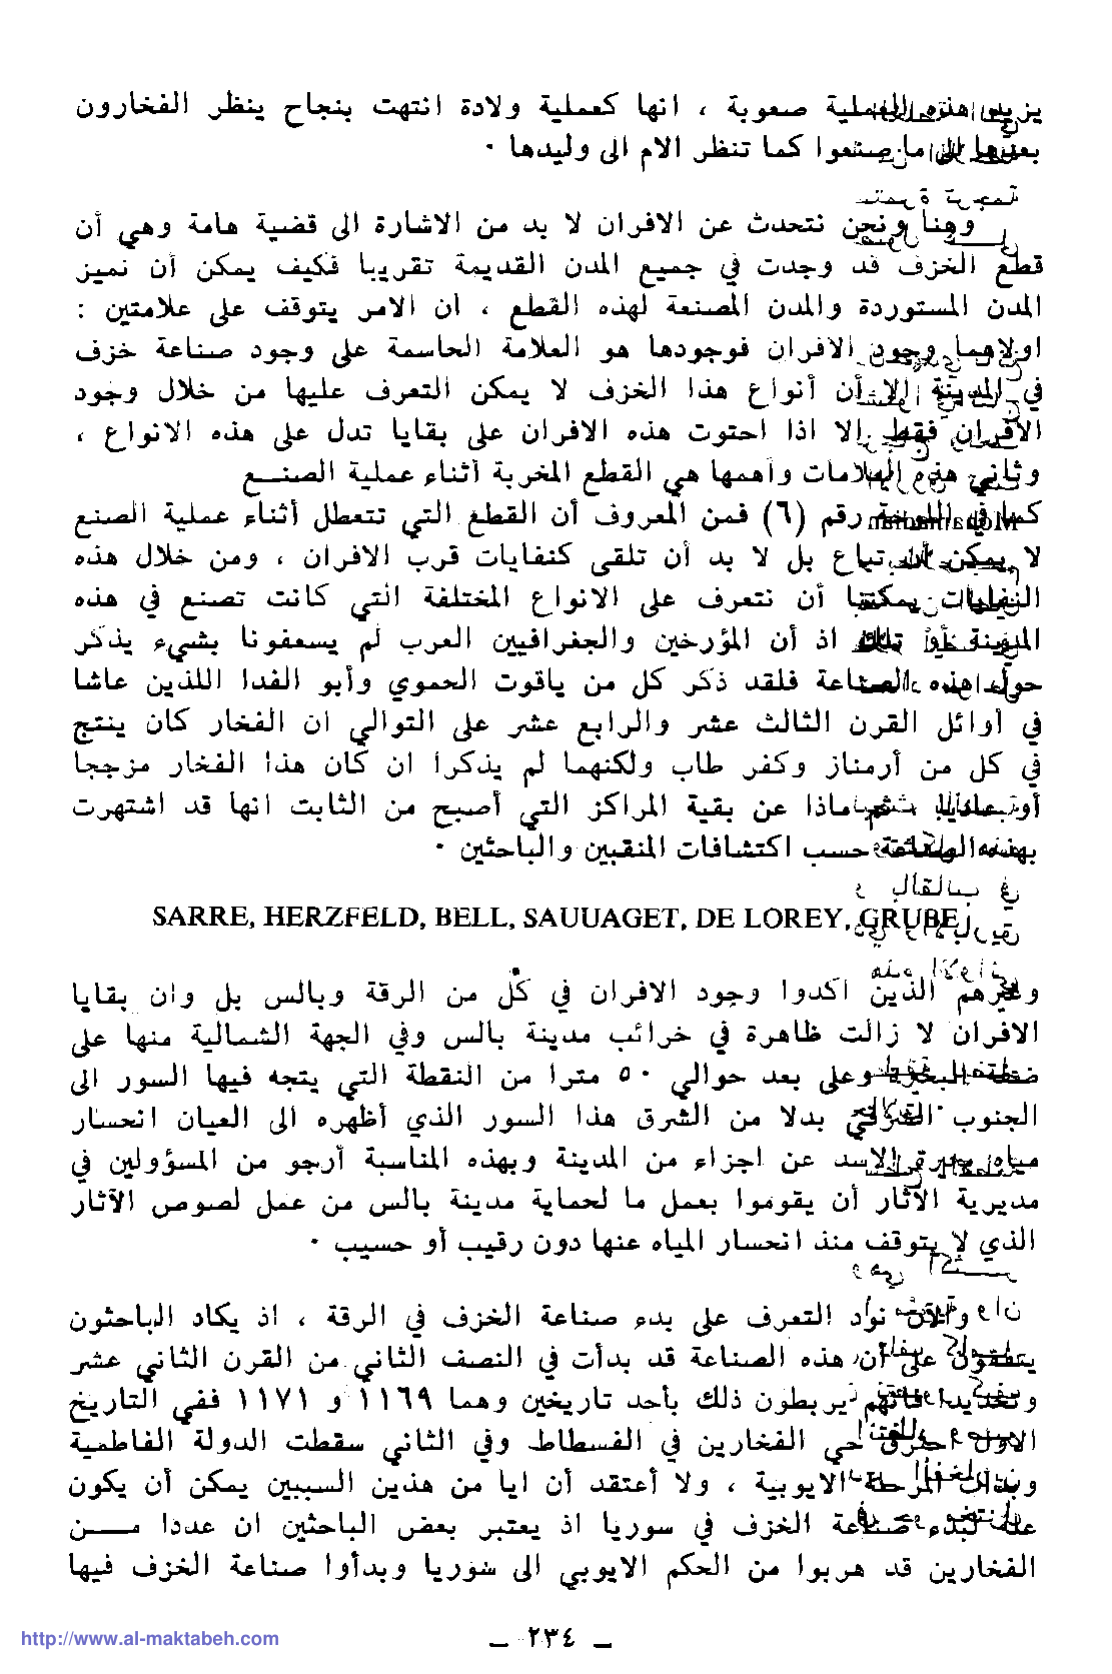 يزيد هذه العملية صعوبة ، انها كعملية ولادة انتهت بنجاح ينظر الفخارون
بعدها الى ما صنعوا كما تنظر الام الى وليدها ·
وهنا ونحن نتحدث عن الافران لا بد من الاشارة الى قضية هامة وهي أن
قطع الخزف قد وجدت في جميع المدن القديمة تقريبا فكيف يمكن أن نميز
المدن المستوردة والمدن المصنعة لهذه القطع ، ان الامر يتوقف على علامتين :
اولاهما وجود الافران فوجودها هو العلامة الحاسمة على وجود صناعة خزف
في المدينة الا أن أنواع هذا الخزف لا يمكن التعرف عليها من خلال وجود
الافران فقط الا اذا احتوت هذه الافران على بقايا تدل على هذه الانواع ،
وثاني هذه العلامات وأهمها هي القطع المخربة أثناء عملية الصنـــع
كما في اللوحة رقم (٦) فمن المعروف أن القطع التي تتعطل أثناء عملية الصنع
لا يمكن أن تباع بل لا بد أن تلقى كنفايات قرب الافران ، ومن خلال هذه
النفايات يمكننا أن نتعرف على الانواع المختلفة التي كانت تصنع في هذه
المدينة أو تلك اذ أن المؤرخين والجغرافيين العرب لم يسعفونا بشيء يذكر
حول هذه الصناعة فلقد ذكر كل من ياقوت الحموي وأبو الفدا اللذين عاشا
في أوائل القرن الثالث عشر والرابع عشر على التوالي ان الفخار كان ينتج
في كل من أرمناز وكفر طاب ولكنهما لم يذكرا ان كان هذا الفخار مزججا
أو عاديا ، ثم ماذا عن بقية المراكز التي أصبح من الثابت انها قد اشتهرت
بهذه الصناعة حسب اكتشافات المنقبين والباحثين ·
SARRE, HERZFELD, BELL, SAUUAGET, DE LOREY, GRUBE
وغيرهم الذين اكدوا وجود الافران في كل من الرقة وبالس بل وان بقايا
الافران لا زالت ظاهرة في خرائب مدينة بالس وفي الجهة الشمالية منها على
ضفة البحيرة وعلى بعد حوالي ٥٠ مترا من النقطة التي يتجه فيها السور الى
الجنوب الشرقي بدلا من الشرق هذا السور الذي أظهره الى العيان انحسار
مياه بحيرة الاسد عن اجزاء من المدينة وبهذه المناسبة أرجو من المسؤولين في
مديرية الآثار أن يقوموا بعمل ما لحماية مدينة بالس من عمل لصوص الآثار
الذي لا يتوقف منذ انحسار المياه عنها دون رقيب أو حسيب ·
والآن نود التعرف على بدء صناعة الخزف في الرقة ، اذ يكاد الباحثون
يتفقون على أن هذه الصناعة قد بدأت في النصف الثاني من القرن الثاني عشر
وتحديدا فانهم يربطون ذلك بأحد تاريخين وهما ١١٦٩ و ١١٧١ ففي التاريخ
الاول احترق حي الفخارين في الفسطاط وفي الثاني سقطت الدولة الفاطمية
وبدأت المرحلة الايوبية ، ولا أعتقد أن ايا من هذين السببين يمكن أن يكون
علة لبدء صناعة الخزف في سوريا اذ يعتبر بعض الباحثين ان عددا مـــن
الفخارين قد هربوا من الحكم الايوبي الى سوريا وبدأوا صناعة الخزف فيها
http://www.al-maktabeh.com
_ ٢٣٤ _